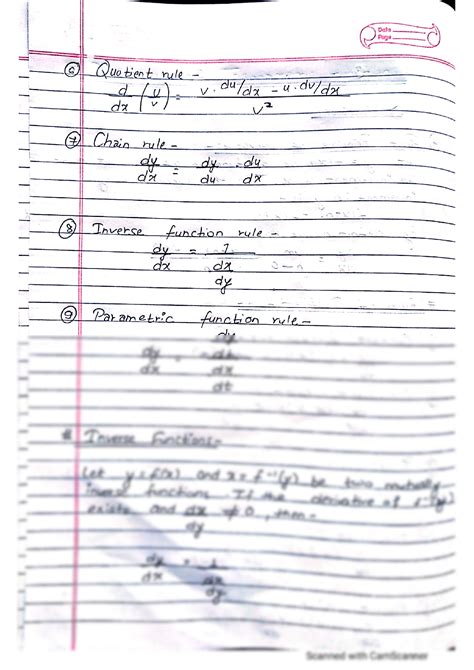 Date
Page
⑥ Quotient rule -
d/dx (u/v) = v. du/dx - u. dv/dx / v²
⑦ Chain rule -
dy/dx = dy/du . du/dx
⑧ Inverse function rule -
dy/dx = 1 / dx/dy
⑨ Parametric function rule -
dy/dx = dy/dt / dx/dt
# Inverse Functions -
Let y = f(x) and x = f⁻¹(y) be two mutually
inverse functions. If the derivative of f⁻¹(y)
exists and dx/dy ≠ 0, then -
dy/dx = 1 / dx/dy
Scanned with CamScanner